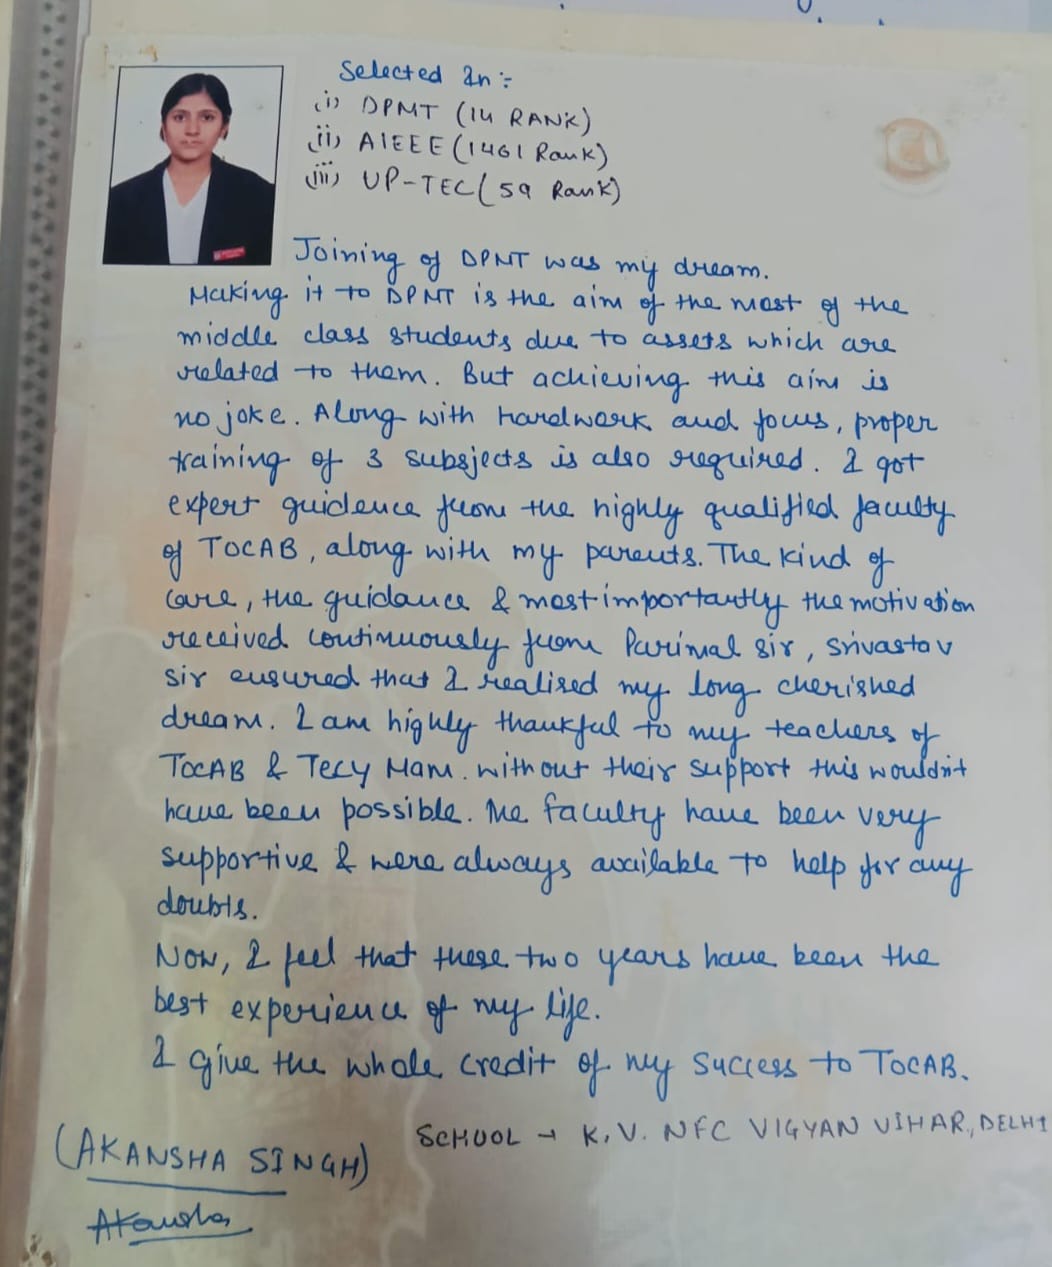 Selected In :-
(i) DPMT (14 RANK)
(ii) AIEEE (1461 Rank)
(iii) UP-TEC (59 Rank)
Joining of DPMT was my dream.
Making it to DPMT is the aim of the most of the
middle class students due to assets which are
related to them. But achieving this aim is
no joke. Along with hardwork and focus, proper
training of 3 subsjects is also required. I got
expert guidence from the highly qualified faculty
of TOCAB, along with my parents. The kind of
care, the guidance & most importantly the motivation
received continuously from Parimal sir, srivastav
sir ensured that I realised my long cherished
dream. I am highly thankful to my teachers of
TOCAB & Tecy Mam. without their support this wouldn't
have been possible. The faculty have been very
supportive & were always available to help for any
doubts.
Now, I feel that these two years have been the
best experience of my life.
I give the whole credit of my success to TOCAB.
SCHOOL → K.V. NFC VIGYAN VIHAR, DELHI
(AKANSHA SINGH)
Akansha